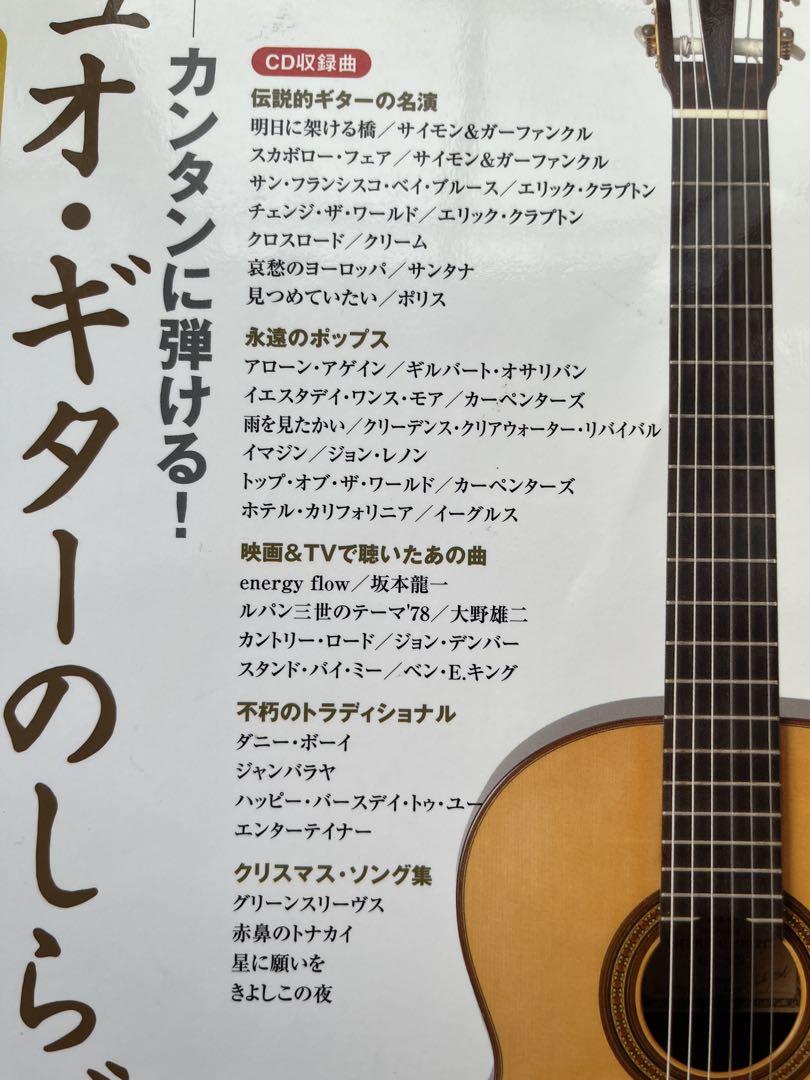 オ・ギターのしら
カンタンに弾ける!
CD収録曲
伝説的ギターの名演
明日に架ける橋／サイモン&ガーファンクル
スカボロー・フェア／サイモン&ガーファンクル
サン・フランシスコ・ベイ・ブルース／エリック・クラプトン
チェンジ・ザ・ワールド／エリック・クラプトン
クロスロード／クリーム
哀愁のヨーロッパ／サンタナ
見つめていたい／ポリス
永遠のポップス
アローン・アゲイン／ギルバート・オサリバン
イエスタデイ・ワンス・モア／カーペンターズ
雨を見たかい／クリーデンス・クリアウォーター・リバイバル
イマジン／ジョン・レノン
トップ・オブ・ザ・ワールド／カーペンターズ
ホテル・カリフォリニア／イーグルス
映画&TVで聴いたあの曲
energy flow／坂本龍一
ルパン三世のテーマ'78／大野雄二
カントリー・ロード／ジョン・デンバー
スタンド・バイ・ミー／ベン・E.キング
不朽のトラディショナル
ダニー・ボーイ
ジャンバラヤ
ハッピー・バースデイ・トゥ・ユー
エンターテイナー
クリスマス・ソング集
グリーンスリーヴス
赤鼻のトナカイ
星に願いを
きよしこの夜